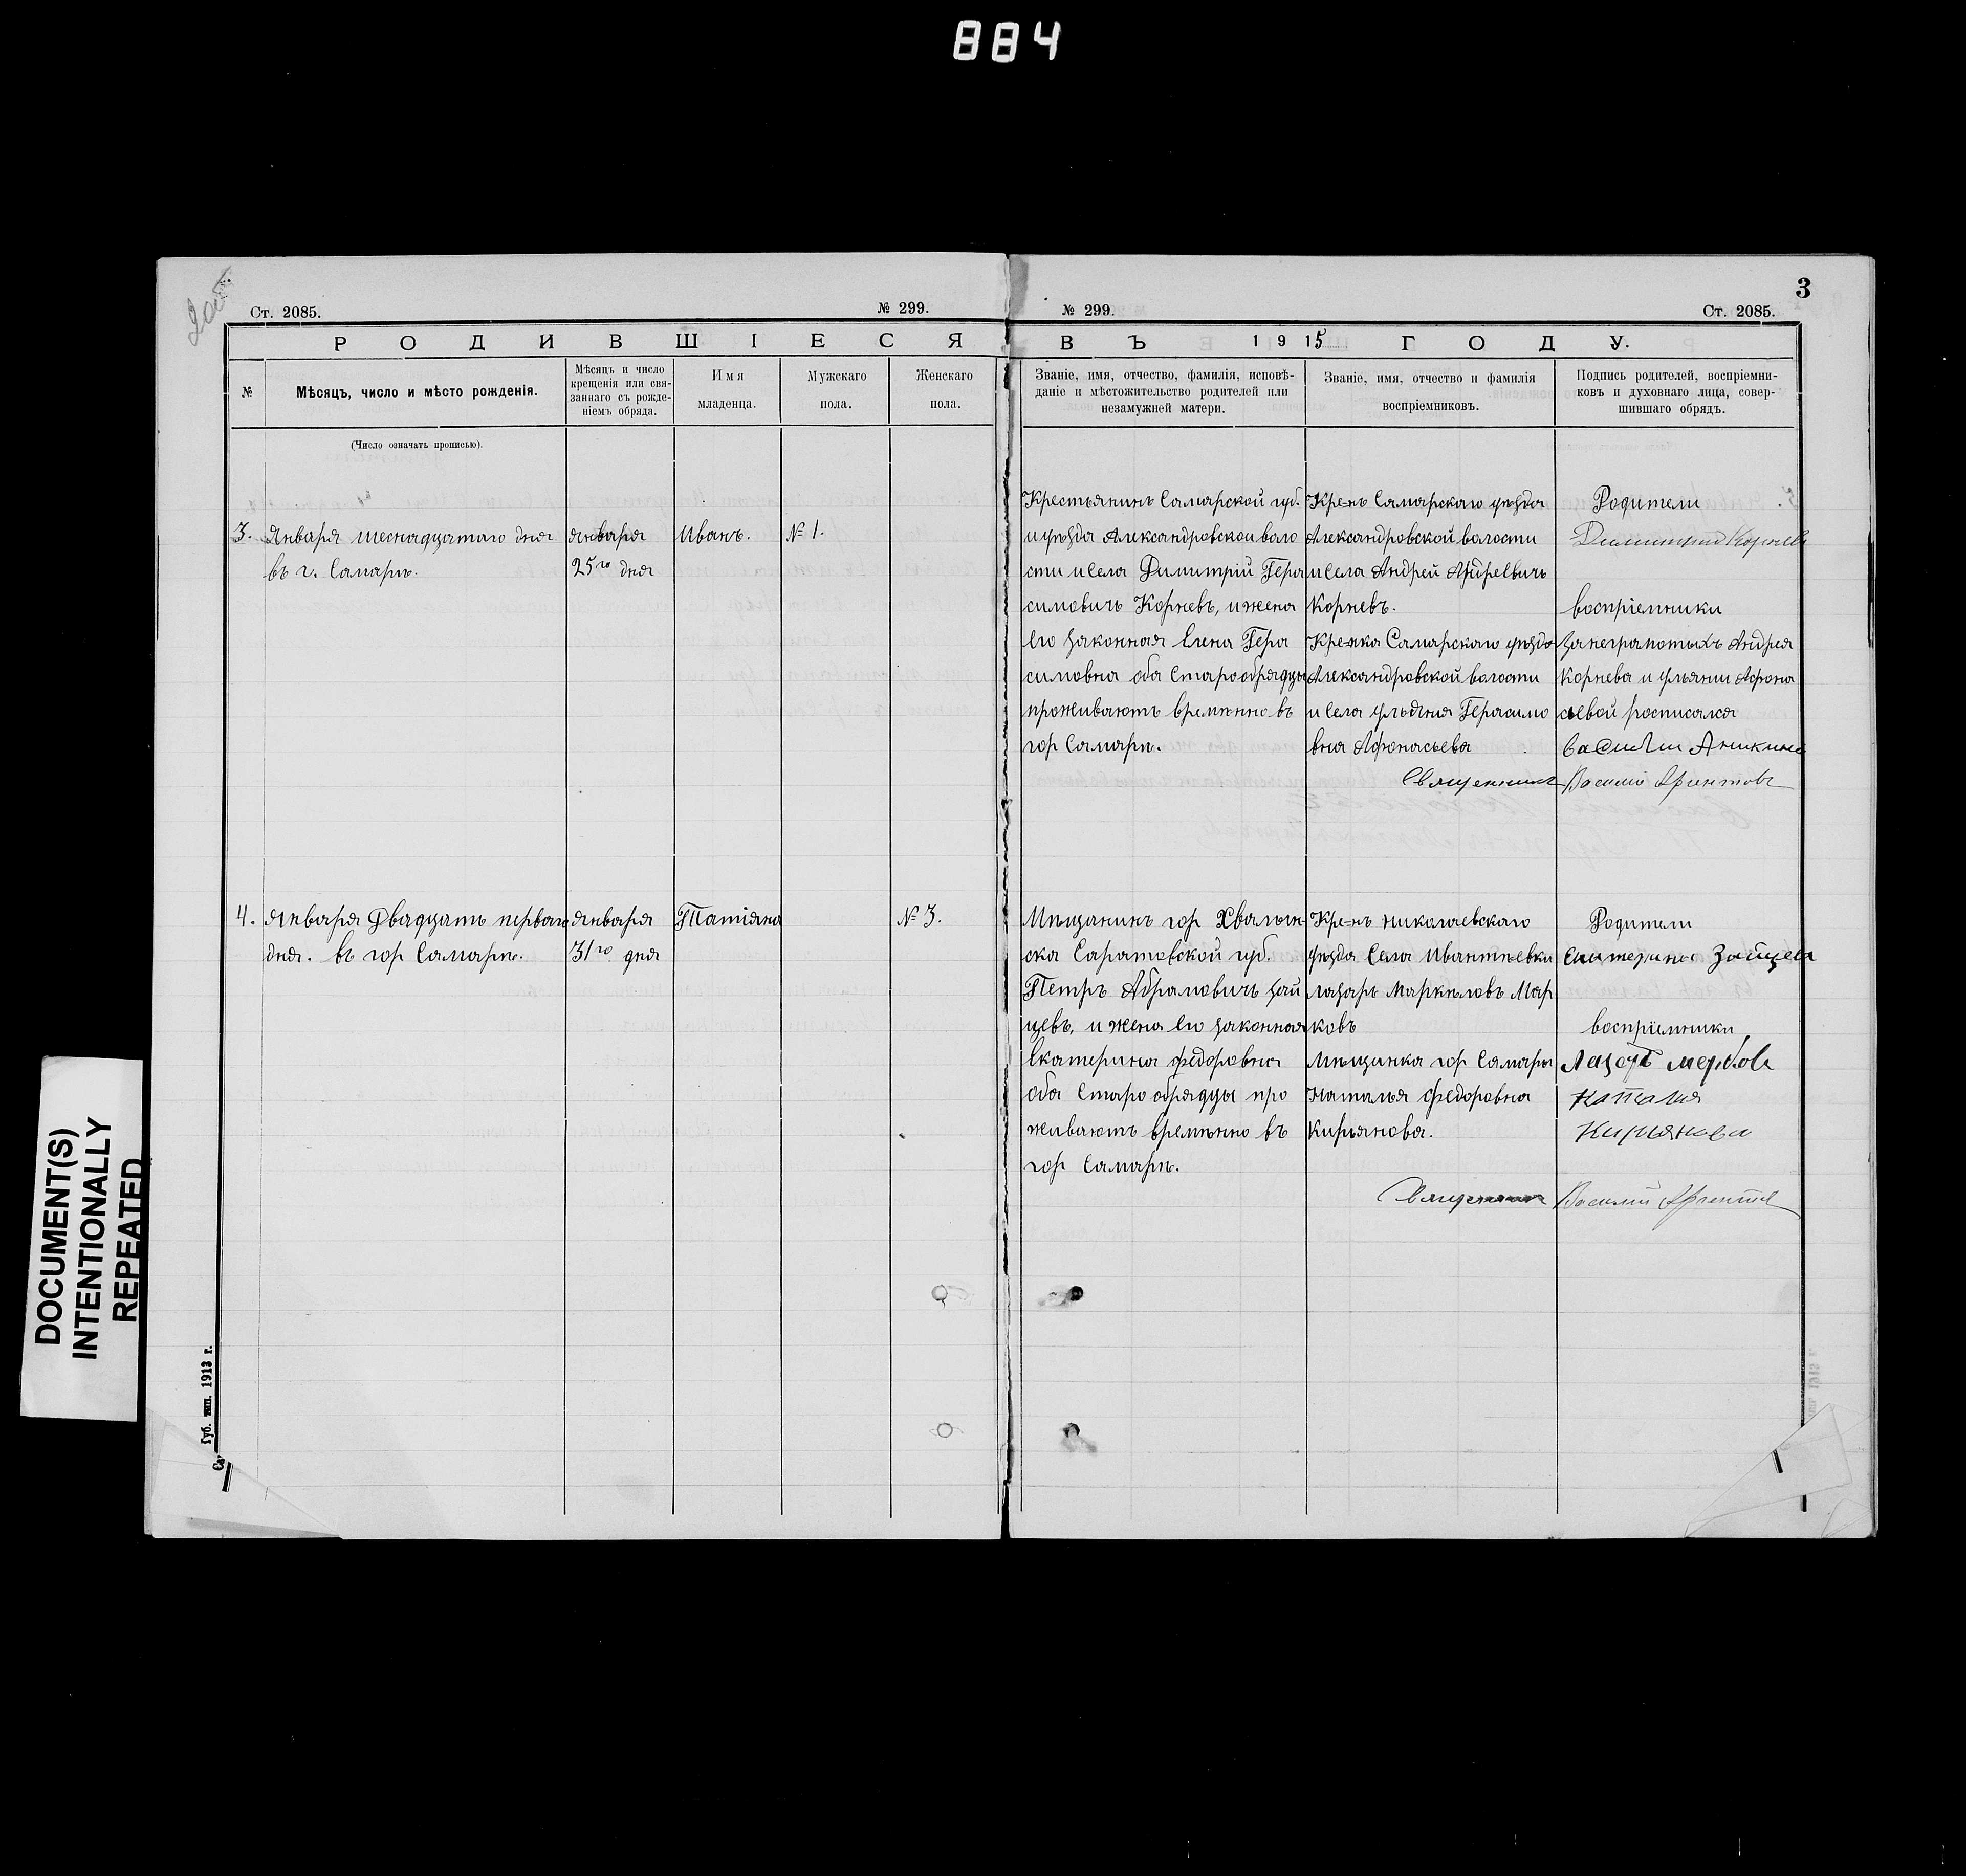 884
3
Ст. 2085.
№ 299.
№ 299.
Ст. 2085.
РОДИВШІЕСЯ
ВЪ 1915 ГОДУ.
№
Мѣсяцъ, число и мѣсто рожденія.
(Число означать прописью).
Мѣсяцъ и число
крещенія или свя-
заннаго съ рожде-
ніемъ обряда.
Имя
младенца.
Мужскаго
пола.
Женскаго
пола.
Званіе, имя, отчество, фамилія, исповѣ-
даніе и мѣстожительство родителей или
незамужней матери.
Званіе, имя, отчество и фамилія
воспріемниковъ.
Подпись родителей, воспріемни-
ковъ и духовнаго лица, совер-
шившаго обрядъ.
3.
Января шеснадцатаго дня
въ г. Самарѣ.
Января
25го дня
Иванъ.
№ 1.
Крестьянинъ Самарской губ.
и уѣзда Александровской воло
сти и села Димитрій Гера
симовичъ Корневъ, и жена
его законная Елена Гера
симовна оба Старообрядцы
проживаютъ времѣнно въ
гор Самарѣ.
Кре=нъ Самарскаго уѣзда
Александровской волости
и села Андрей Андреевичъ
Корневъ.
Кре=нка Самарскаго уѣзда
Александровской волости
и села Ульяния Герасимо
вна Афонасьева
Священникъ
Родители
Димитрий Корнев
воспріемники
за неграмотыхъ Андрея
Корнева и Ульянии Афона
сьевой росписался
Василий Аникинъ
Василій
4.
Января Двадцать перваго
дня. въ гор Самарѣ.
Января
31го дня
Татіяна
№ 3.
Мѣщанинъ гор Хвалын-
ска Саратовской губ.
Петръ Абрамовичъ Зай
цевъ, и жена его законная
Екатерина Федоровна
оба Старообрядцы про
живаютъ времѣнно въ
гор Самарѣ.
Кре=нъ Николаевскаго
уѣзда Села Ивантѣевки
Лазарь Маркѣловъ Мар
ковъ
Мѣщанка гор Самары
Наталья Федоровна
Кирьянова.
Священник
Родители
Зайцева
воспріемники
Наталия
Кирьянова
Василій
DOCUMENT(S)
INTENTIONALLY
REPEATED
Губ. тип. 1913 г.